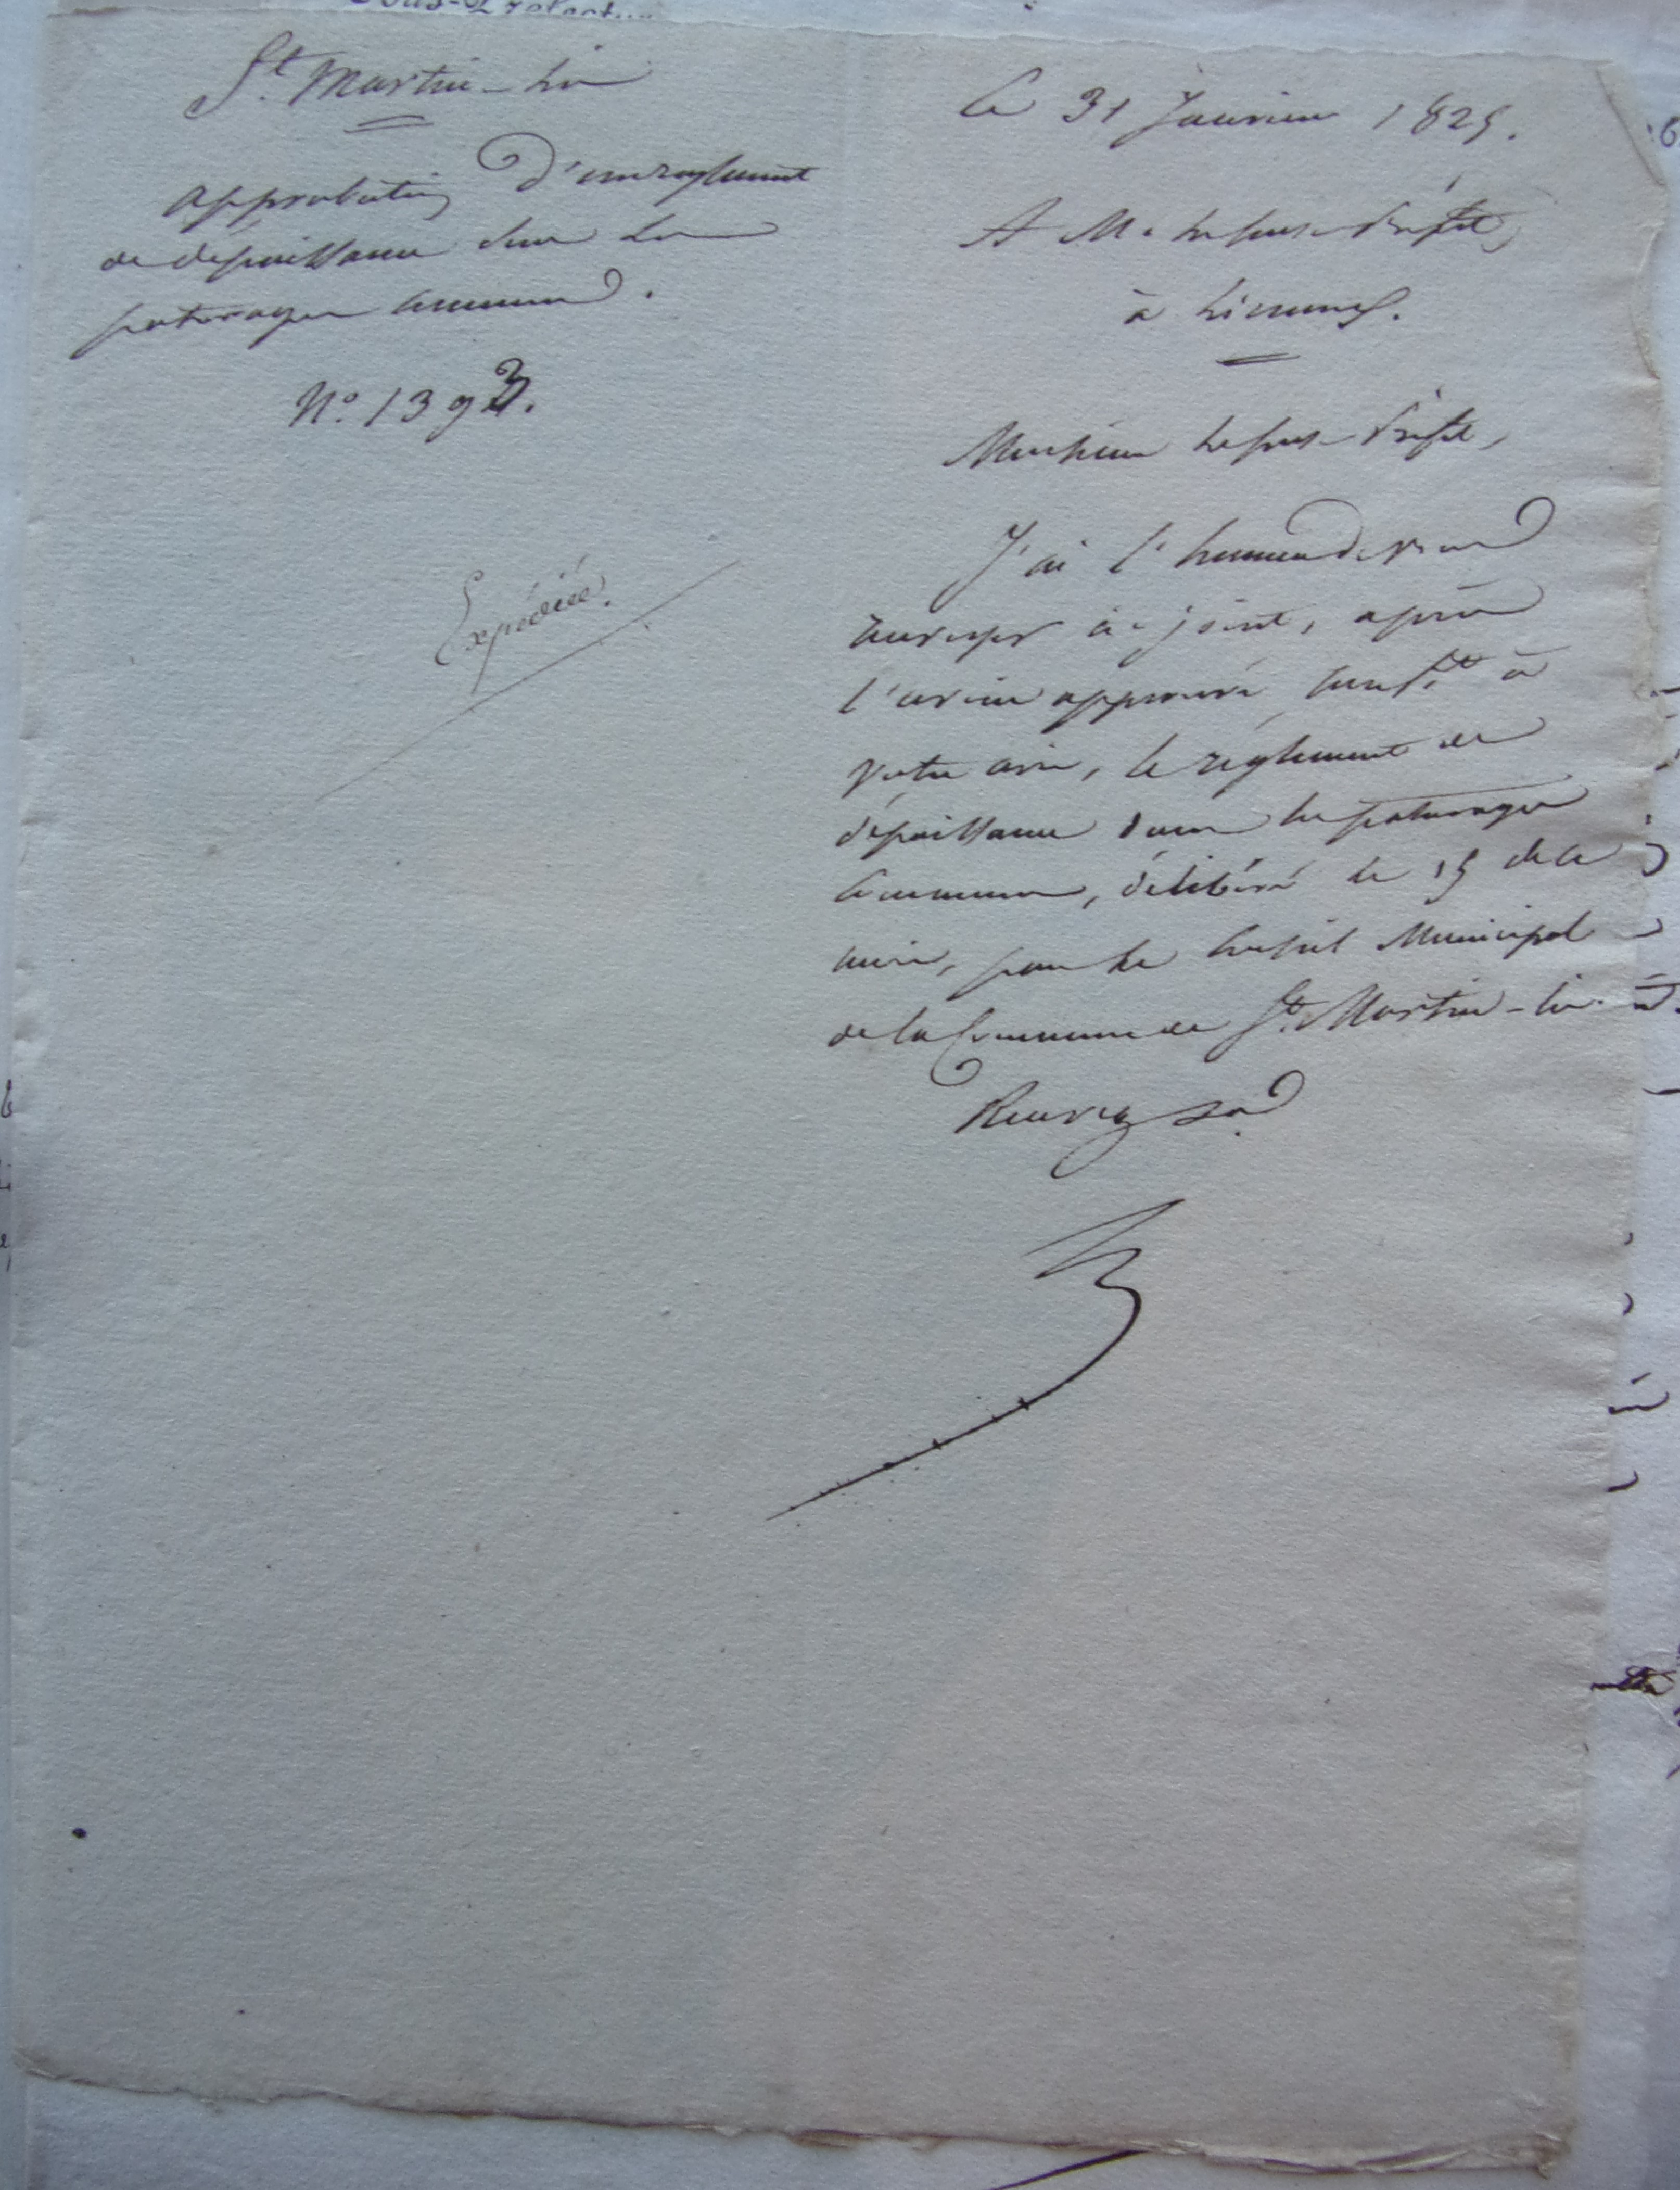 St. Martin-Lis
Approbation d'un règlement
de dépaissance dans les
paturages communs.
N.o 1393.
Expédiée.
Le 31 Janvier 1825.
A M. le sous-Préfet,
à Limoux.
Monsieur le sous-Préfet,
J'ai l'honneur de vous
renvoyer ci-joint, après
l'avoir approuvé, conft. à
votre avis, le règlement de
dépaissance dans les paturages
communs, délibéré le 15 de ce
mois, par le Conseil Municipal
de la Commune de St. Martin-lis.
Recevez